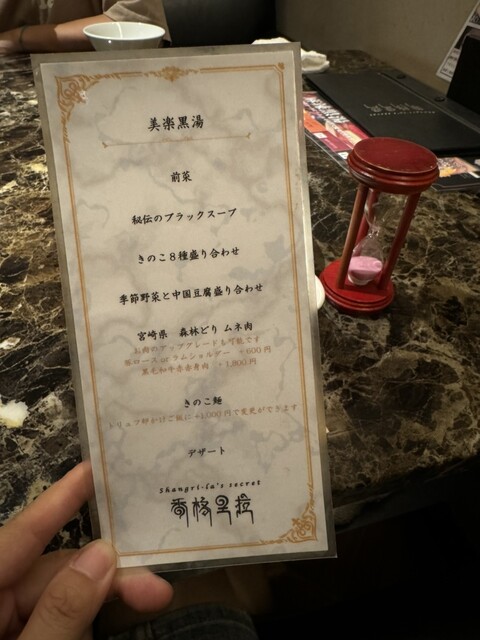 美楽黒湯
前菜
秘伝のブラックスープ
きのこ8種盛り合わせ
季節野菜と中国豆腐盛り合わせ
宮崎県 森林どり ムネ肉
お肉のアップグレードも可能です
豚ロース or ラムショルダー +600円
黒毛和牛赤身肉 +1,800円
きのこ麺
トリュフ卵かけご飯に+1,000円で変更ができます
デザート
Shangri-La's secret
香格里拉